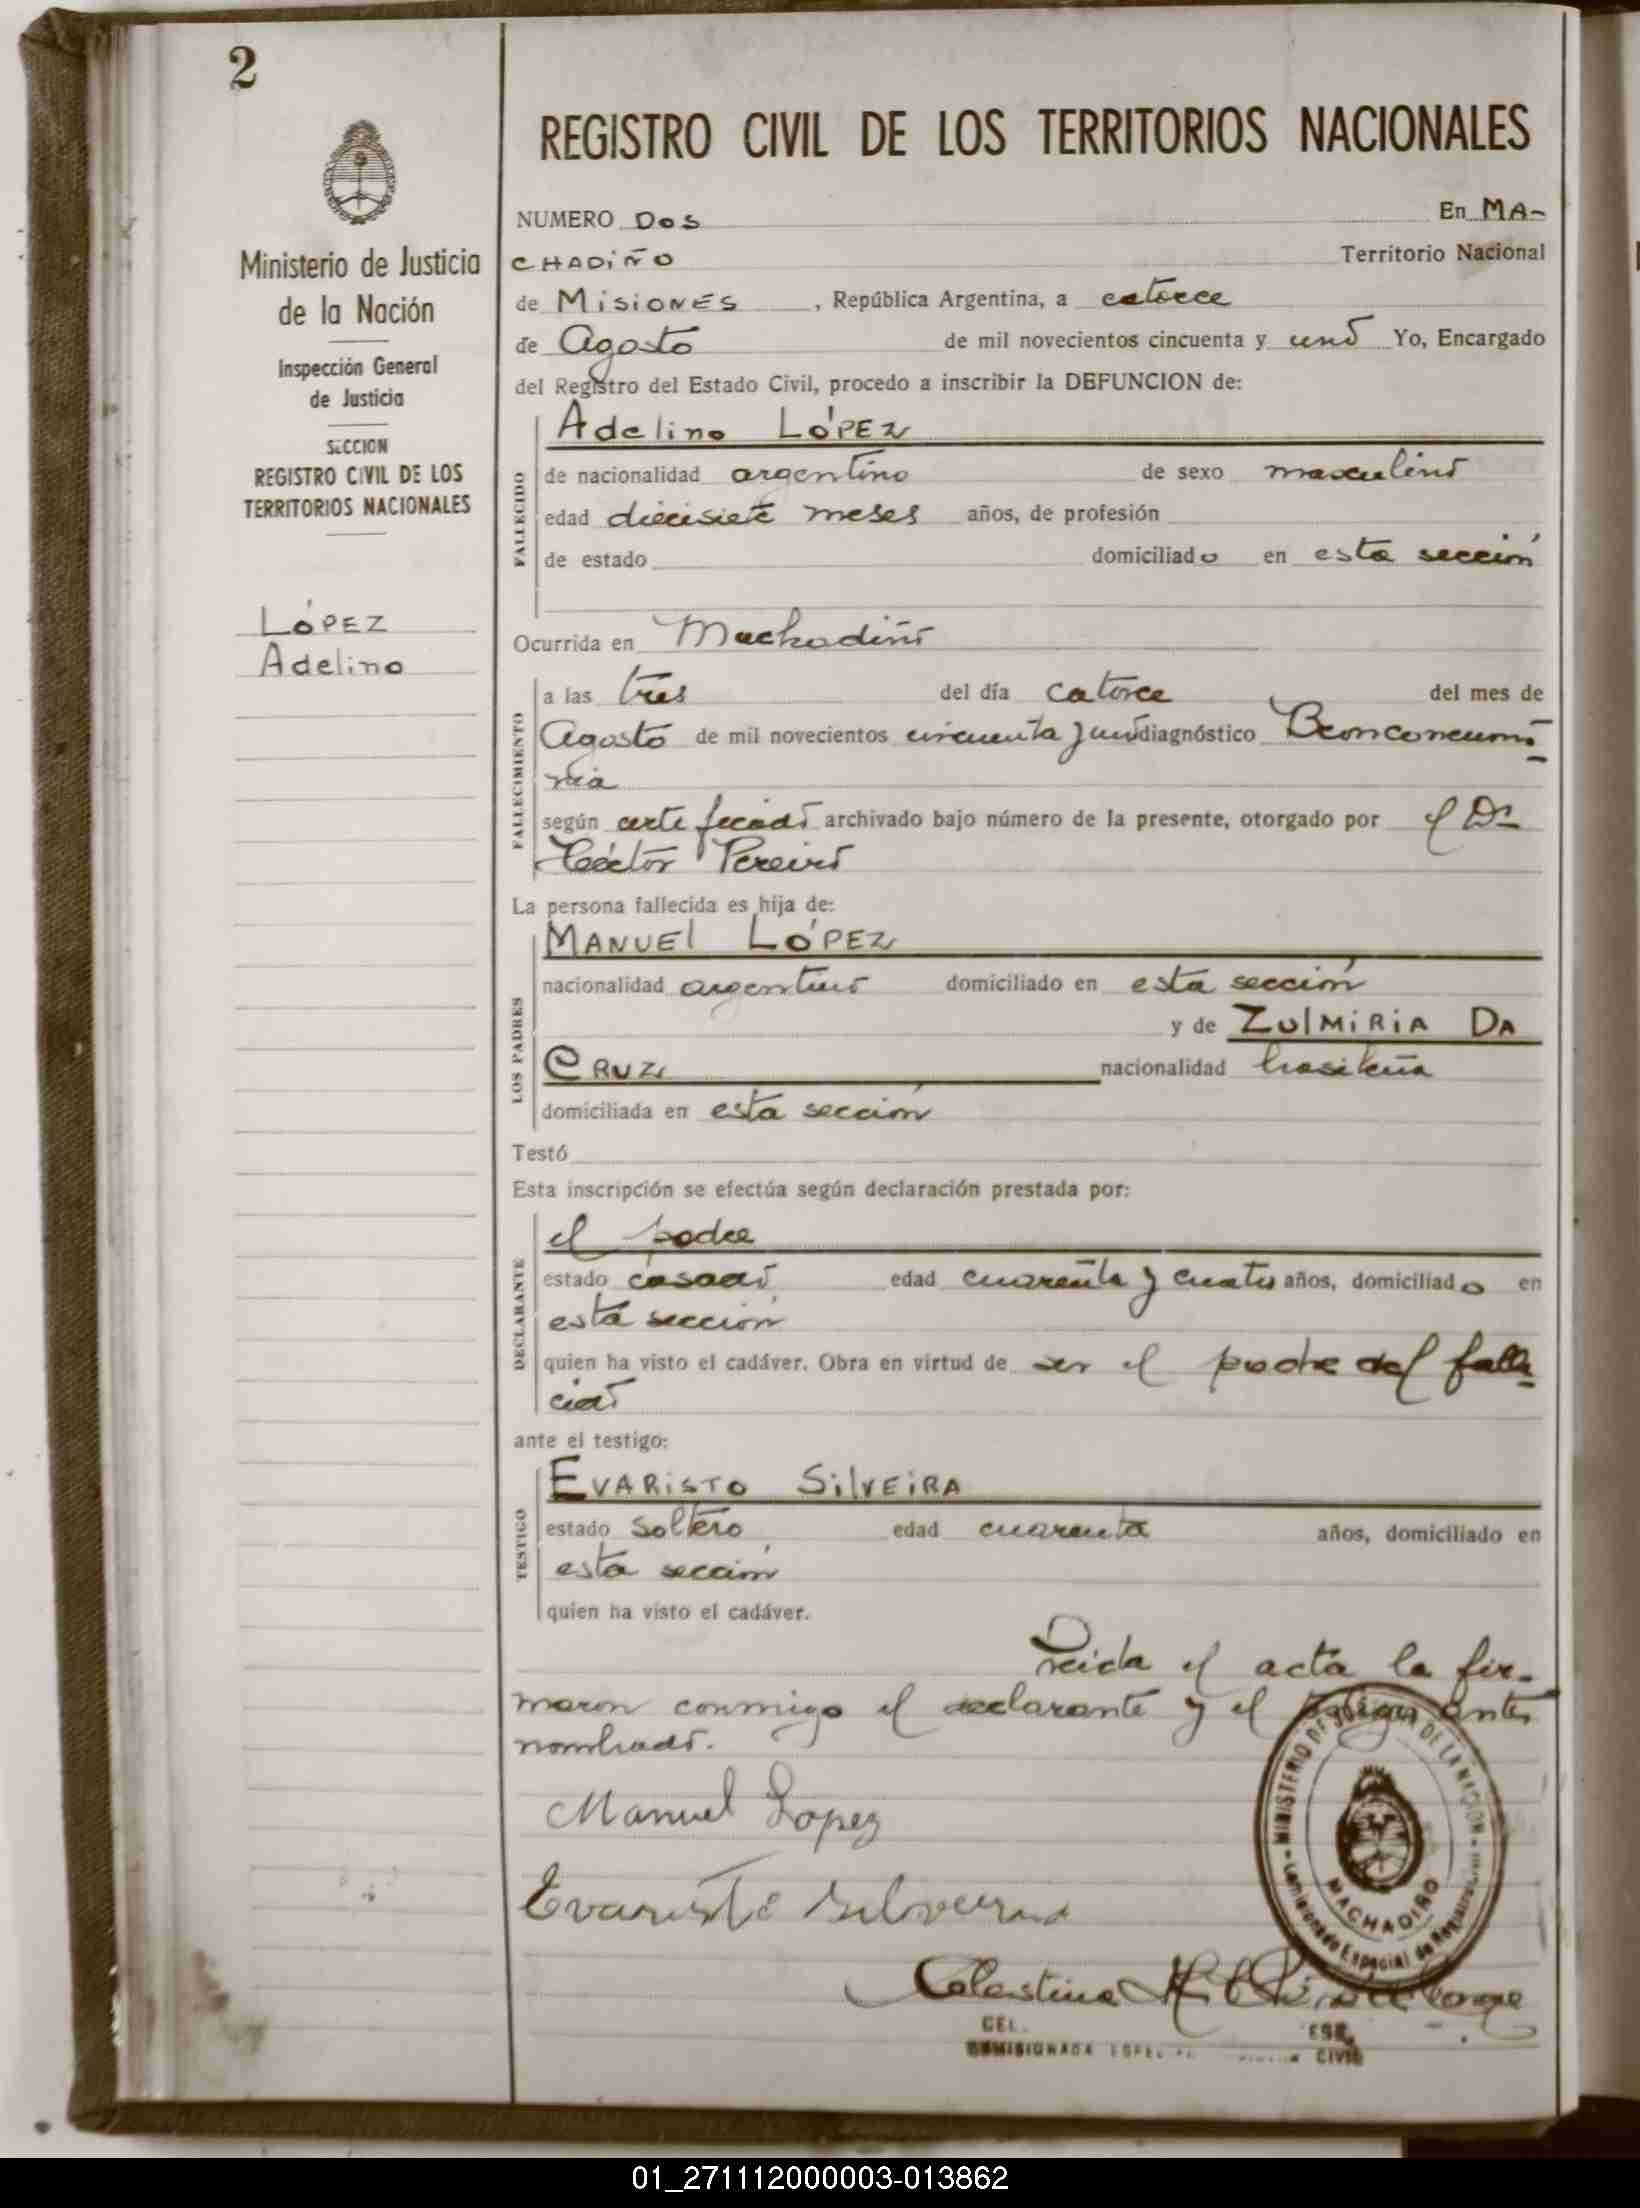 2
REGISTRO CIVIL DE LOS TERRITORIOS NACIONALES
Ministerio de Justicia
de la Nación
Inspección General
de Justicia
SECCION
REGISTRO CIVIL DE LOS
TERRITORIOS NACIONALES
LÓPEZ
Adelino
NUMERO Dos En MA-
CHADIÑO Territorio Nacional
de MISIONES , República Argentina, a catorce
de Agosto de mil novecientos cincuenta y uno Yo, Encargado
del Registro del Estado Civil, procedo a inscribir la DEFUNCION de:
FALLECIDO
Adelino LÓPEZ
de nacionalidad argentino de sexo masculino
edad diecisiete meses años, de profesión
de estado domiciliado en esta sección
Ocurrida en Machadiño
FALLECIMIENTO
a las tres del día catorce del mes de
Agosto de mil novecientos cincuenta y uno diagnóstico Bronconeumo-
nia
según certificado archivado bajo número de la presente, otorgado por el Dr
Héctor Pereira
La persona fallecida es hija de:
LOS PADRES
MANUEL LÓPEZ
nacionalidad argentino domiciliado en esta sección
y de ZULMIRIA DA
CRUZ nacionalidad brasileña
domiciliada en esta sección
Testó
Esta inscripción se efectúa según declaración prestada por:
DECLARANTE
el padre
estado casado, edad cuarenta y cuatro años, domiciliado en
esta sección
quien ha visto el cadáver. Obra en virtud de ser el padre del falle-
cido
ante el testigo:
TESTIGO
EVARISTO SILVEIRA
estado soltero, edad cuarenta años, domiciliado en
esta sección
quien ha visto el cadáver.
Leida el acta la fir-
maron conmigo el declarante y el testigo antes
nombrado.
Manuel Lopez
Evaristo Silveira
MINISTERIO DE JUSTICIA DE LA NACION
MACHADIÑO
Comisionado Especial de
Celestina
CEL.
COMISIONADA CIVIL
01_271112000003-013862